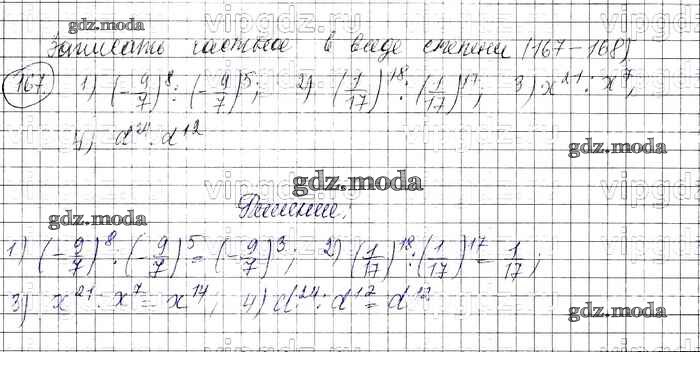 gdz.moda
vipgdz.ru
Записать частное в виде степени (167-168)
167. 1) (-9/7)^8 : (-9/7)^5; 2) (1/17)^18 : (1/17)^17; 3) x^21 : x^7;
4) d^24 : d^12
gdz.moda
gdz.moda
vipgdz.ru
gdz.moda
Решение:
1) (-9/7)^8 : (-9/7)^5 = (-9/7)^3; 2) (1/17)^18 : (1/17)^17 = 1/17;
3) x^21 : x^7 = x^14; 4) d^24 : d^12 = d^12
gdz.moda
vipgdz.ru